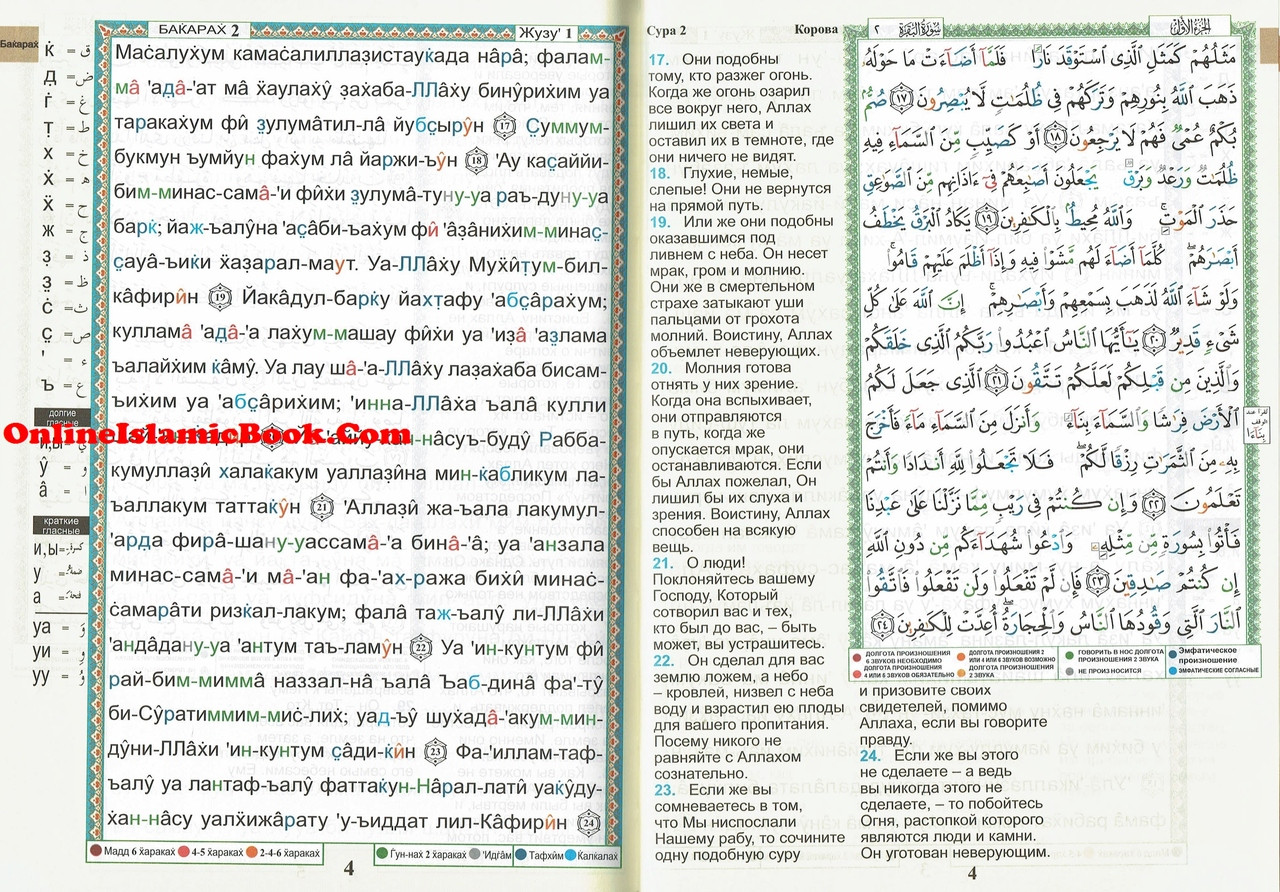 БАКАРАХ 2
Жузу' 1
Бакарах
Маċалуҳум камаċалиллаẕистауќада нâрâ; фалам-
мâ 'адâ-'ат мâ ҳаулаҳŷ ẕаҳаба-ЛЛâҳу бинŷриҳим уа
таракаҳум фî ẓулумâтил-лâ йубçырŷн 17 Çуммум-
букмун ъумйун фаҳум лâ йаржи-ъŷн 18 'Ау каçаййи-
бим-минас-самâ-'и фîҳи ẓулумâ-туну-уа раъ-дуну-уа
барќ; йаж-ъалŷна 'аçâби-ъаҳум фî 'âẕâниҳим-минаç-
çауâ-ъиќи ҳаẕарал-маут. Уа-ЛЛâҳу Муҳîṭум-бил-
кâфирîн 19 Йакâдул-барќу йаҳтафу 'абçâраҳум;
кулламâ 'адâ-'а лаҳум-м-машау фîҳи уа 'иẕâ 'аẓлама
ъалайҳим ќâмŷ. Уа лау шâ-'а-ЛЛâҳу лаẕаҳаба бисам-
ъиҳим уа 'абçâриҳим; 'инна-ЛЛâҳа ъалâ кулли
OnlineIslamicBook.Com
кумуллаẕî халаќакум уаллаẕîна мин-ќабликум ла-
ъаллакум таттаќŷн 21 'Аллаẕî жа-ъала лакумул-
'арда фирâ-шану-уассамâ-'а бинâ-'â; уа 'анзала
минас-самâ-'и мâ-'ан фа-'аҳ-ража биҳî минаċ-
ċамарâти ризќал-лакум; фалâ таж-ъалŷ ли-ЛЛâҳи
'андâдану-уа 'антум таъ-ламŷн 22 Уа 'ин-кунтум фî
рай-бим-миммâ наззал-нâ ъалâ Ъаб-динâ фа'-тŷ
би-Сŷратиммим-миċ-лиҳ; уад-ъŷ шуҳадâ-'акум-мин-
дŷни-ЛЛâҳи 'ин-кунтум çâди-ќîн 23 Фа-'иллам-таф-
ъалŷ уа лантаф-ъалŷ фаттаќун-Нâрал-латî уаќŷду-
ҳан-нâсу уалҳижâрату 'у-ъиддат лил-Кâфирîн 24
долгие
гласные
краткие
гласные
Мадд 6 ҳаракаҳ 4-5 ҳаракаҳ 2-4-6 ҳаракаҳ
Ѓун-наҳ 2 ҳаракаҳ 'Идѓâм Тафҳîм Ќалќалаҳ
4
Сура 2 Корова
17. Они подобны
тому, кто разжег огонь.
Когда же огонь озарил
все вокруг него, Аллах
лишил их света и
оставил их в темноте, где
они ничего не видят.
18. Глухие, немые,
слепые! Они не вернутся
на прямой путь.
19. Или же они подобны
оказавшимся под
ливнем с неба. Он несет
мрак, гром и молнию.
Они же в смертельном
страхе затыкают уши
пальцами от грохота
молний. Воистину, Аллах
объемлет неверующих.
20. Молния готова
отнять у них зрение.
Когда она вспыхивает,
они отправляются
в путь, когда же
опускается мрак, они
останавливаются. Если
бы Аллах пожелал, Он
лишил бы их слуха и
зрения. Воистину, Аллах
способен на всякую
вещь.
21. О люди!
Поклоняйтесь вашему
Господу, Который
сотворил вас и тех,
кто был до вас, – быть
может, вы устрашитесь.
22. Он сделал для вас
землю ложем, а небо
– кровлей, низвел с неба
воду и взрастил ею плоды
для вашего пропитания.
Посему никого не
равняйте с Аллахом
сознательно.
23. Если же вы
сомневаетесь в том,
что Мы ниспослали
Нашему рабу, то сочините
одну подобную суру
٢ سورة البقرة
الجزء الأول
مَثَلُهُمْ كَمَثَلِ ٱلَّذِى ٱسْتَوْقَدَ نَارًا فَلَمَّآ أَضَآءَتْ مَا حَوْلَهُۥ
ذَهَبَ ٱللَّهُ بِنُورِهِمْ وَتَرَكَهُمْ فِى ظُلُمَٰتٍ لَّا يُبْصِرُونَ ١٧ صُمٌّۢ
بُكْمٌ عُمْىٌ فَهُمْ لَا يَرْجِعُونَ ١٨ أَوْ كَصَيِّبٍ مِّنَ ٱلسَّمَآءِ فِيهِ
ظُلُمَٰتٌ وَرَعْدٌ وَبَرْقٌ يَجْعَلُونَ أَصَٰبِعَهُمْ فِىٓ ءَاذَانِهِم مِّنَ ٱلصَّوَٰعِقِ
حَذَرَ ٱلْمَوْتِ وَٱللَّهُ مُحِيطٌۢ بِٱلْكَٰفِرِينَ ١٩ يَكَادُ ٱلْبَرْقُ يَخْطَفُ
أَبْصَٰرَهُمْ كُلَّمَآ أَضَآءَ لَهُم مَّشَوْا۟ فِيهِ وَإِذَآ أَظْلَمَ عَلَيْهِمْ قَامُوا۟
وَلَوْ شَآءَ ٱللَّهُ لَذَهَبَ بِسَمْعِهِمْ وَأَبْصَٰرِهِمْ إِنَّ ٱللَّهَ عَلَىٰ كُلِّ
شَىْءٍ قَدِيرٌ ٢٠ يَٰٓأَيُّهَا ٱلنَّاسُ ٱعْبُدُوا۟ رَبَّكُمُ ٱلَّذِى خَلَقَكُمْ
وَٱلَّذِينَ مِن قَبْلِكُمْ لَعَلَّكُمْ تَتَّقُونَ ٢١ ٱلَّذِى جَعَلَ لَكُمُ
ٱلْأَرْضَ فِرَٰشًا وَٱلسَّمَآءَ بِنَآءً وَأَنزَلَ مِنَ ٱلسَّمَآءِ مَآءً فَأَخْرَجَ
بِهِۦ مِنَ ٱلثَّمَرَٰتِ رِزْقًا لَّكُمْ فَلَا تَجْعَلُوا۟ لِلَّهِ أَندَادًا وَأَنتُمْ
تَعْلَمُونَ ٢٢ وَإِن كُنتُمْ فِى رَيْبٍ مِّمَّا نَزَّلْنَا عَلَىٰ عَبْدِنَا
فَأْتُوا۟ بِسُورَةٍ مِّن مِّثْلِهِۦ وَٱدْعُوا۟ شُهَدَآءَكُم مِّن دُونِ ٱللَّهِ
إِن كُنتُمْ صَٰدِقِينَ ٢٣ فَإِن لَّمْ تَفْعَلُوا۟ وَلَن تَفْعَلُوا۟ فَٱتَّقُوا۟
ٱلنَّارَ ٱلَّتِى وَقُودُهَا ٱلنَّاسُ وَٱلْحِجَارَةُ أُعِدَّتْ لِلْكَٰفِرِينَ ٢٤
ДОЛГОТА ПРОИЗНОШЕНИЯ
6 ЗВУКОВ НЕОБХОДИМО
ДОЛГОТА ПРОИЗНОШЕНИЯ
4 ИЛИ 5 ЗВУКОВ ОБЯЗАТЕЛЬНО
ДОЛГОТА ПРОИЗНОШЕНИЯ 2
ИЛИ 4 ИЛИ 6 ЗВУКОВ ВОЗМОЖНО
ДОЛГОТА ПРОИЗНОШЕНИЯ
2 ЗВУКА
ГОВОРИТЬ В НОС ДОЛГОТА
ПРОИЗНОШЕНИЯ 2 ЗВУКА
НЕ ПРОИЗНОСИТСЯ
Эмфатическое
произношение
ЭМФАТИЧЕСКИЕ СОГЛАСНЫЕ
и призовите своих
свидетелей, помимо
Аллаха, если вы говорите
правду.
24. Если же вы этого
не сделаете – а ведь
вы никогда этого не
сделаете, – то побойтесь
Огня, растопкой которого
являются люди и камни.
Он уготован неверующим.
4